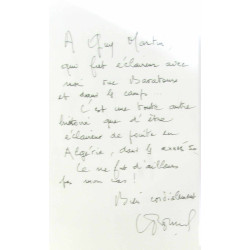 A Guy Martin
qui fut éclaireur avec
moi rue Baratons
et dans le camp...
C'est une toute autre
histoire que d'être
éclaireur de pointe en
Algérie, dans les
Ce ne fut d'ailleurs
pas mon cas !
Bien cordialement